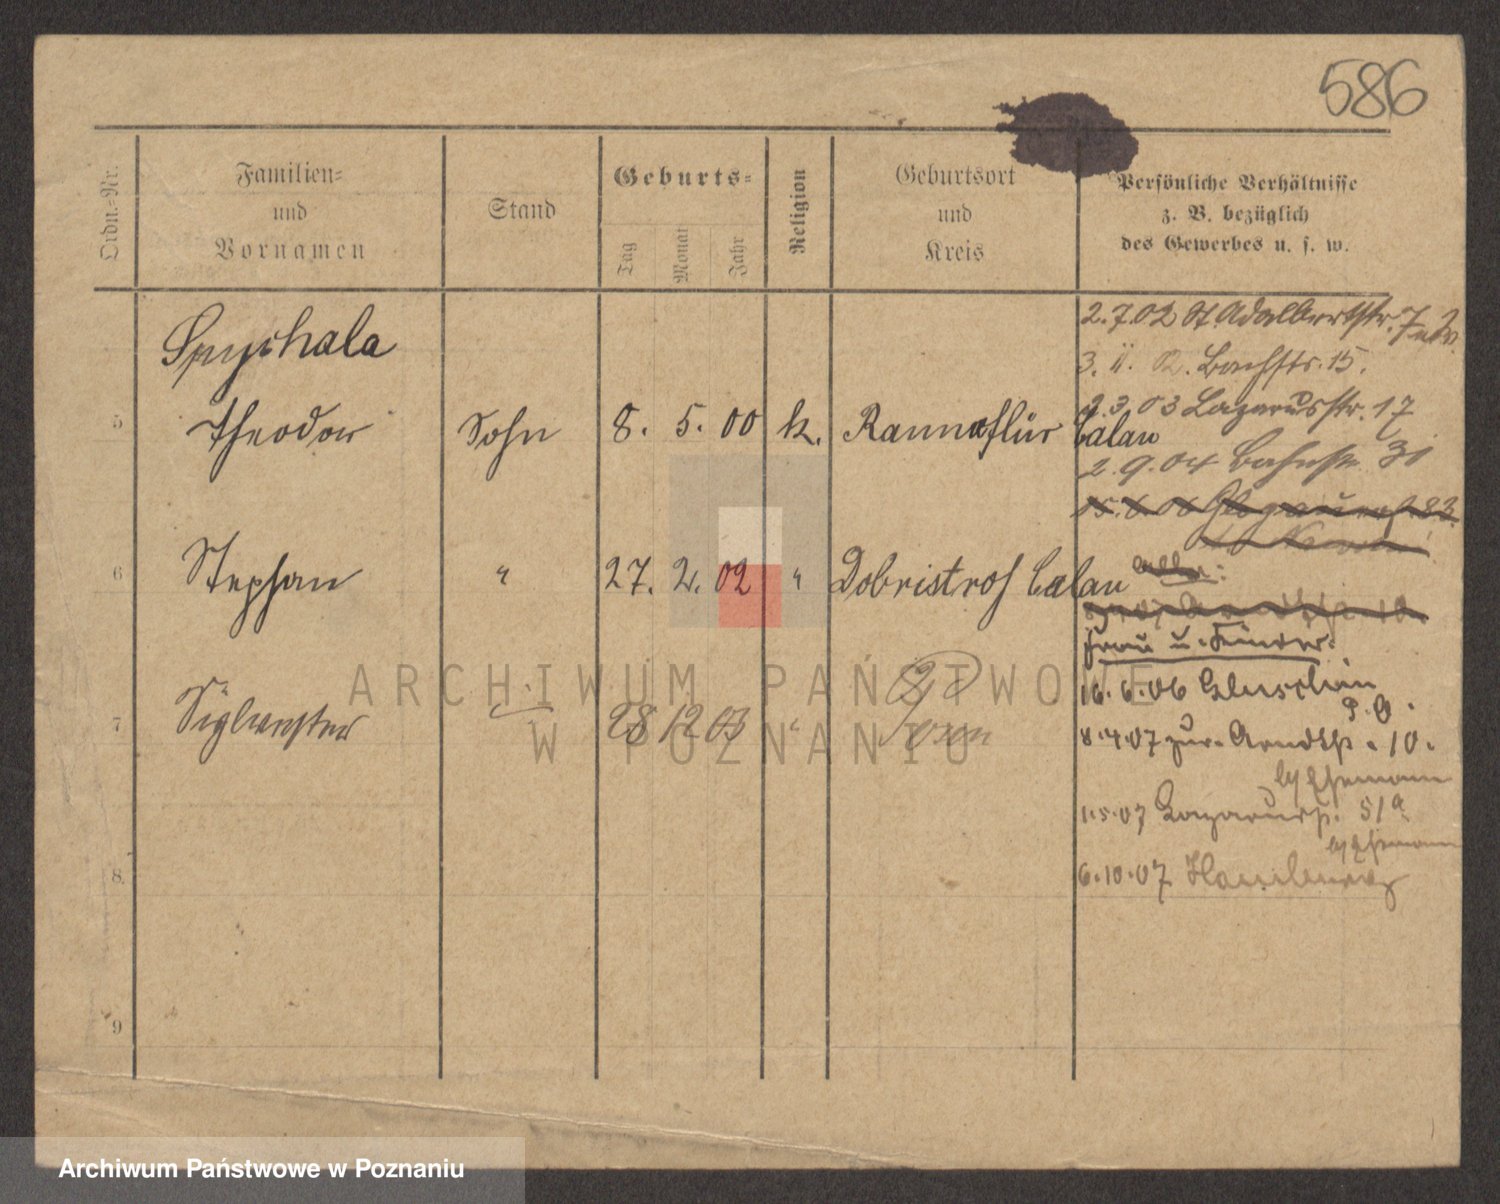 586
Ordn.-Nr.
Familien-
und
Vornamen
Stand
Geburts-
Tag
Monat
Jahr
Religion
Geburtsort
und
Kreis
Persönliche Verhältnisse
z. B. bezüglich
des Gewerbes u. s. w.
Spychala
5 Theodor Sohn 8. 5. 00 k. Rannoflür Calau
6 Stephan " 27. 2. 02 " Dobristroh Calau
7 Sylwester 28 12 03 " Posen
8.
9
2.7.02 St Adalbertstr. 7
3. 11. 02. Bachstr. 15.
2.3.03 Lazarusstr. 17
2.9.04 Bahnstr. 31
Frau u. Kinder:
16.6.06 Gluschin
P. O.
8.4.07 zur. Arndtstr. 10.
b/ Ehemann
1.5.07 Lazarusstr. 51a
b/ Ehemann
6.10.07 Hamburg
ARCHIWUM PAŃSTWOWE
W POZNANIU
Archiwum Państwowe w Poznaniu